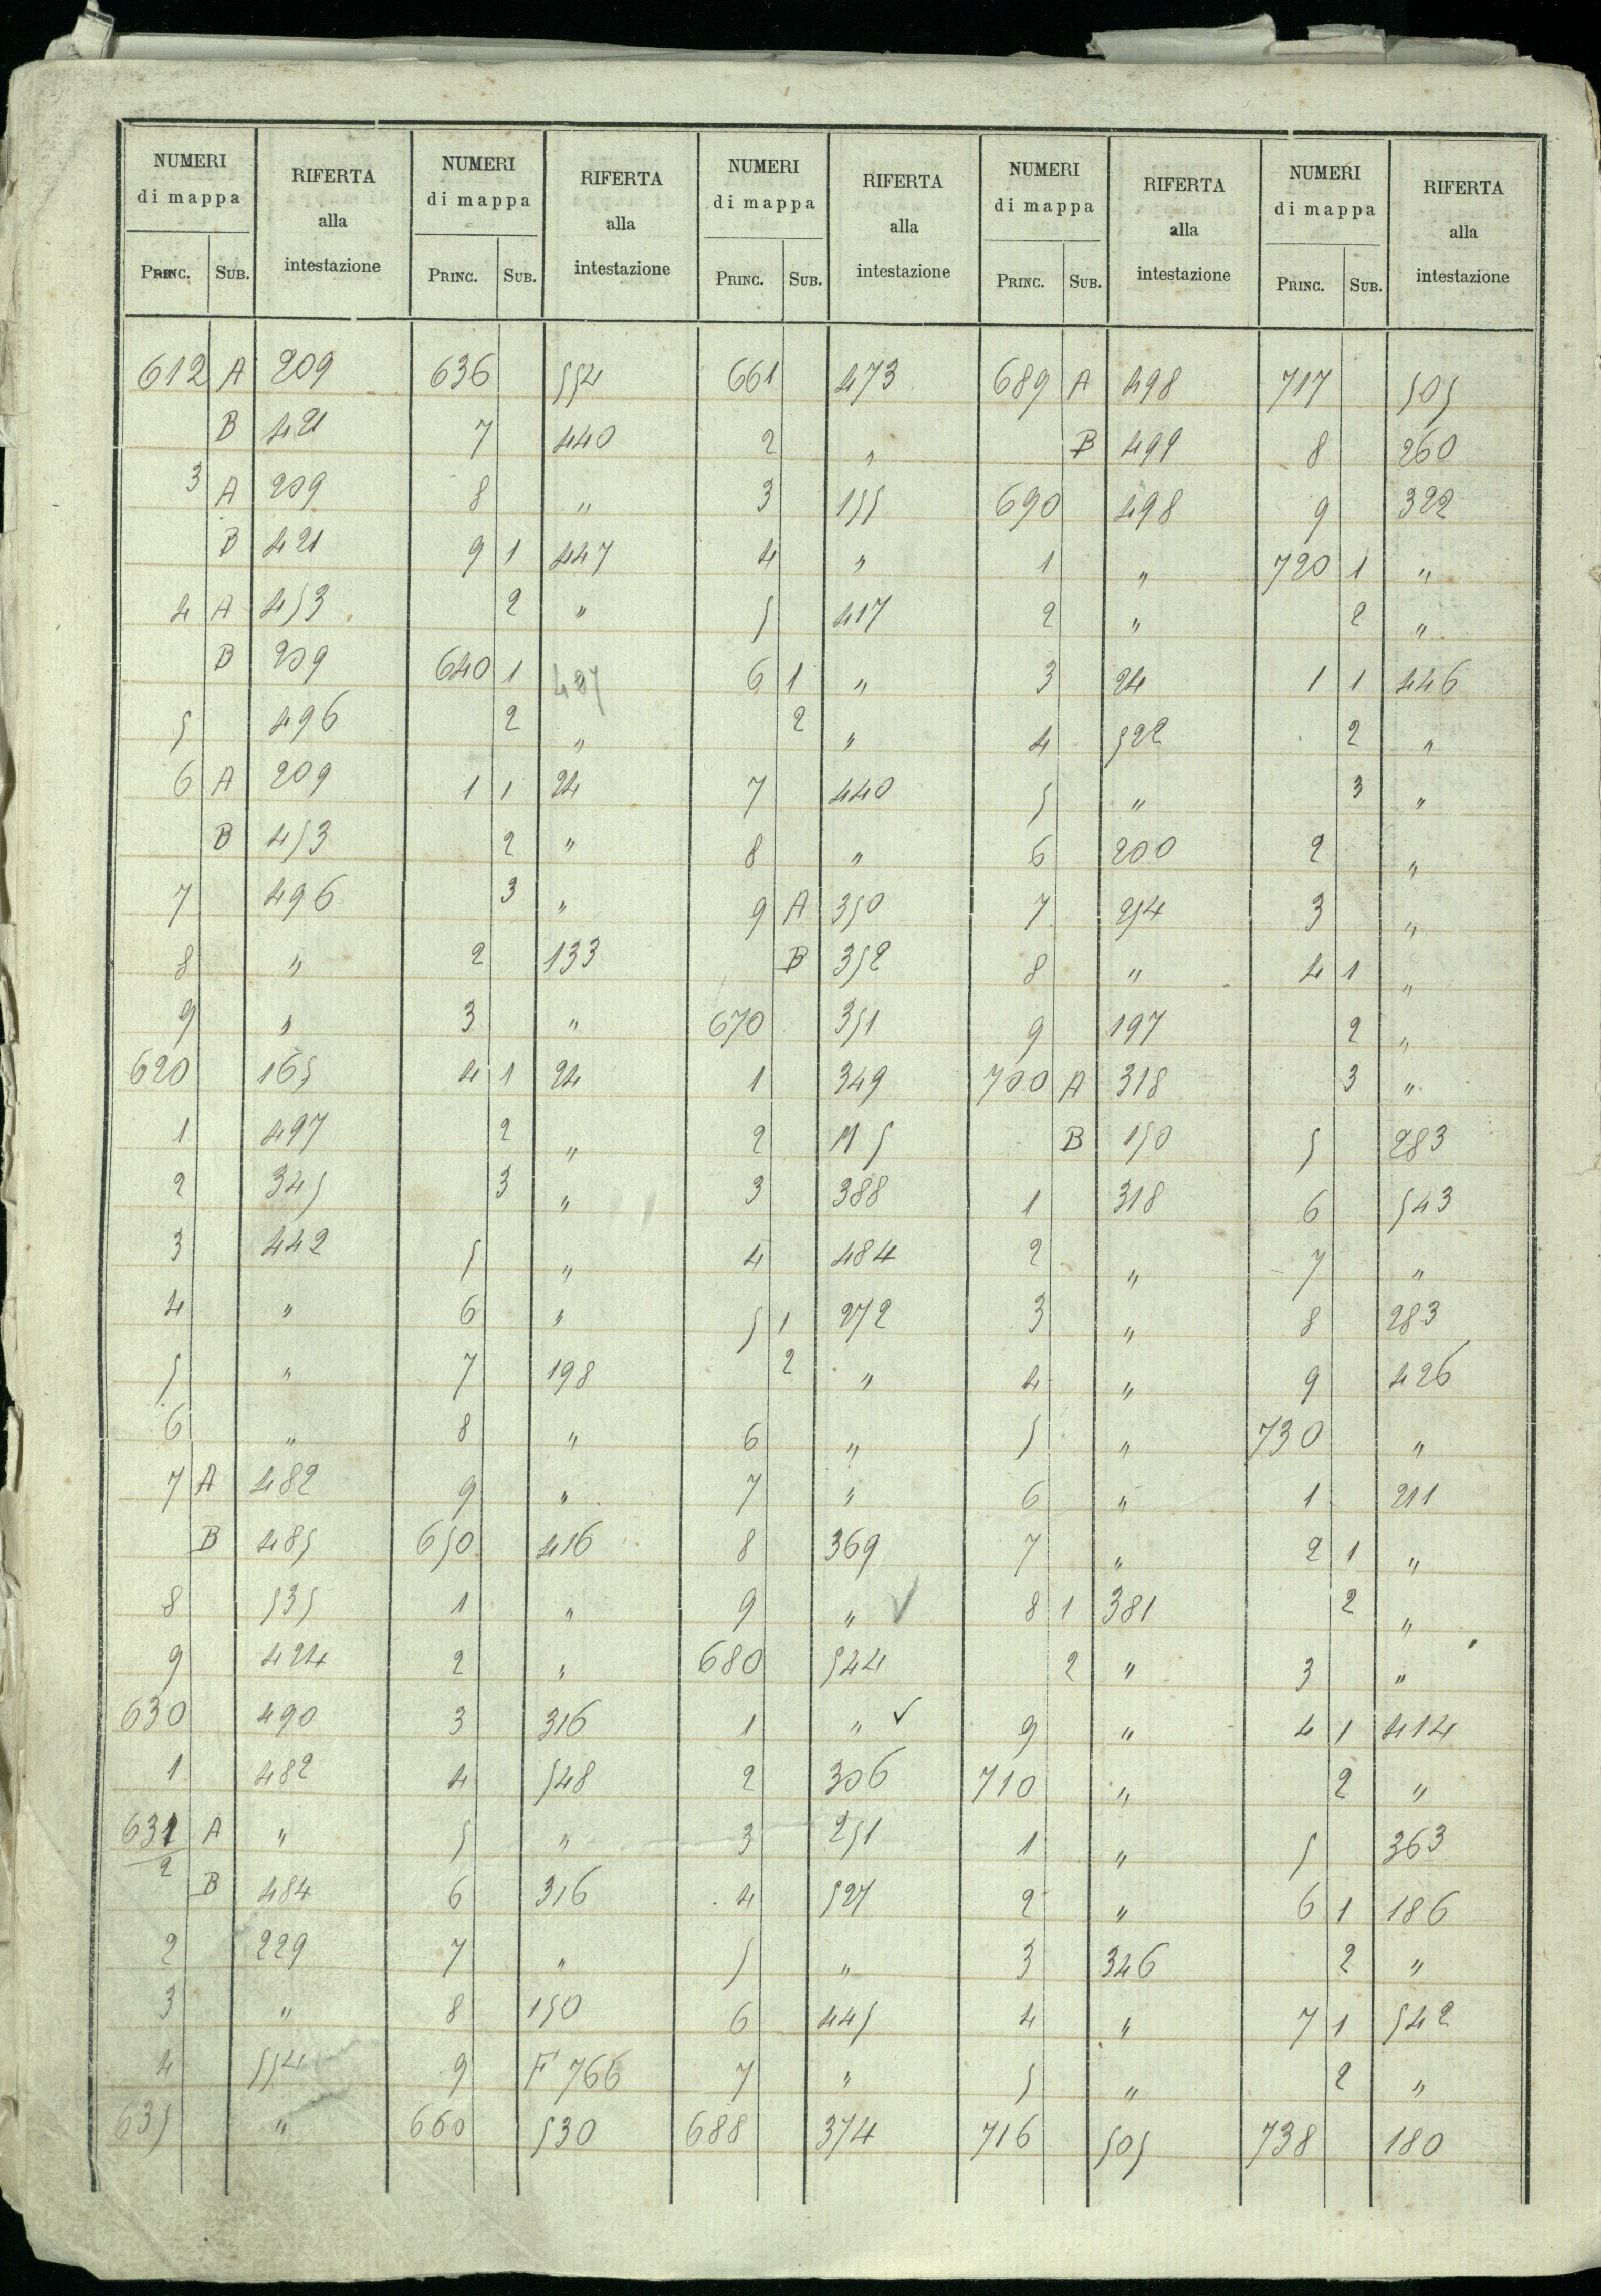 NUMERI di mappa RIFERTA alla intestazione NUMERI di mappa RIFERTA alla intestazione NUMERI di mappa RIFERTA alla intestazione NUMERI di mappa RIFERTA alla intestazione NUMERI di mappa RIFERTA alla intestazione
PRINC. SUB. PRINC. SUB. PRINC. SUB. PRINC. SUB. PRINC. SUB.
612 A 209 636 554 661 473 689 A 498 717 505
B 421 7 440 2 " B 499 8 260
3 A 209 8 " 3 155 690 498 9 322
B 421 9 1 447 4 " 1 " 720 1 "
4 A 453 2 " 5 417 2 " 2 "
B 209 640 1 6 1 " 3 24 1 1 446
5 496 2 " 2 " 4 522 2 "
6 A 209 1 1 24 7 440 5 " 3 "
B 453 2 " 8 " 6 200 2 "
7 496 3 " 9 A 350 7 254 3 "
8 " 2 133 B 352 8 " 4 1 "
9 " 3 " 670 351 9 197 2 "
620 165 4 1 24 1 349 700 A 318 3 "
1 497 2 " 2 115 B 150 5 283
2 345 3 " 3 388 1 318 6 543
3 442 5 " 4 484 2 " 7 "
4 " 6 " 5 1 272 3 " 8 283
5 " 7 198 2 " 4 " 9 426
6 " 8 " 6 " 5 " 730 "
7 A 482 9 " 7 " 6 " 1 211
B 485 650 416 8 369 7 " 2 1 "
8 535 1 " 9 " ✓ 8 1 381 2 "
9 424 2 " 680 544 2 " 3 "
630 490 3 316 1 " ✓ 9 " 4 1 414
1 482 4 548 2 306 710 " 2 "
631/2 A " 5 " 3 251 1 " 5 363
B 484 6 316 4 527 2 " 6 1 186
2 229 7 " 5 " 3 346 2 "
3 " 8 150 6 445 4 " 7 1 542
4 554 9 F 766 7 " 5 " 2 "
635 " 660 530 688 374 716 505 738 180